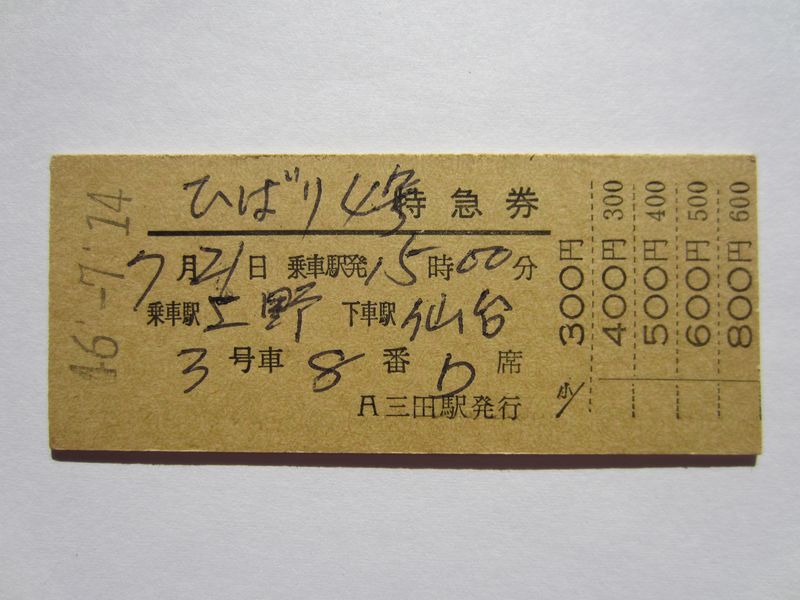 ひばり4号特急券
7月21日 乗車駅発15時00分
乗車駅 上野 下車駅 仙台
3号車 8番D席
A三田駅発行
46.-7.14
300円
400円 300
500円 400
600円 500
800円 600
小